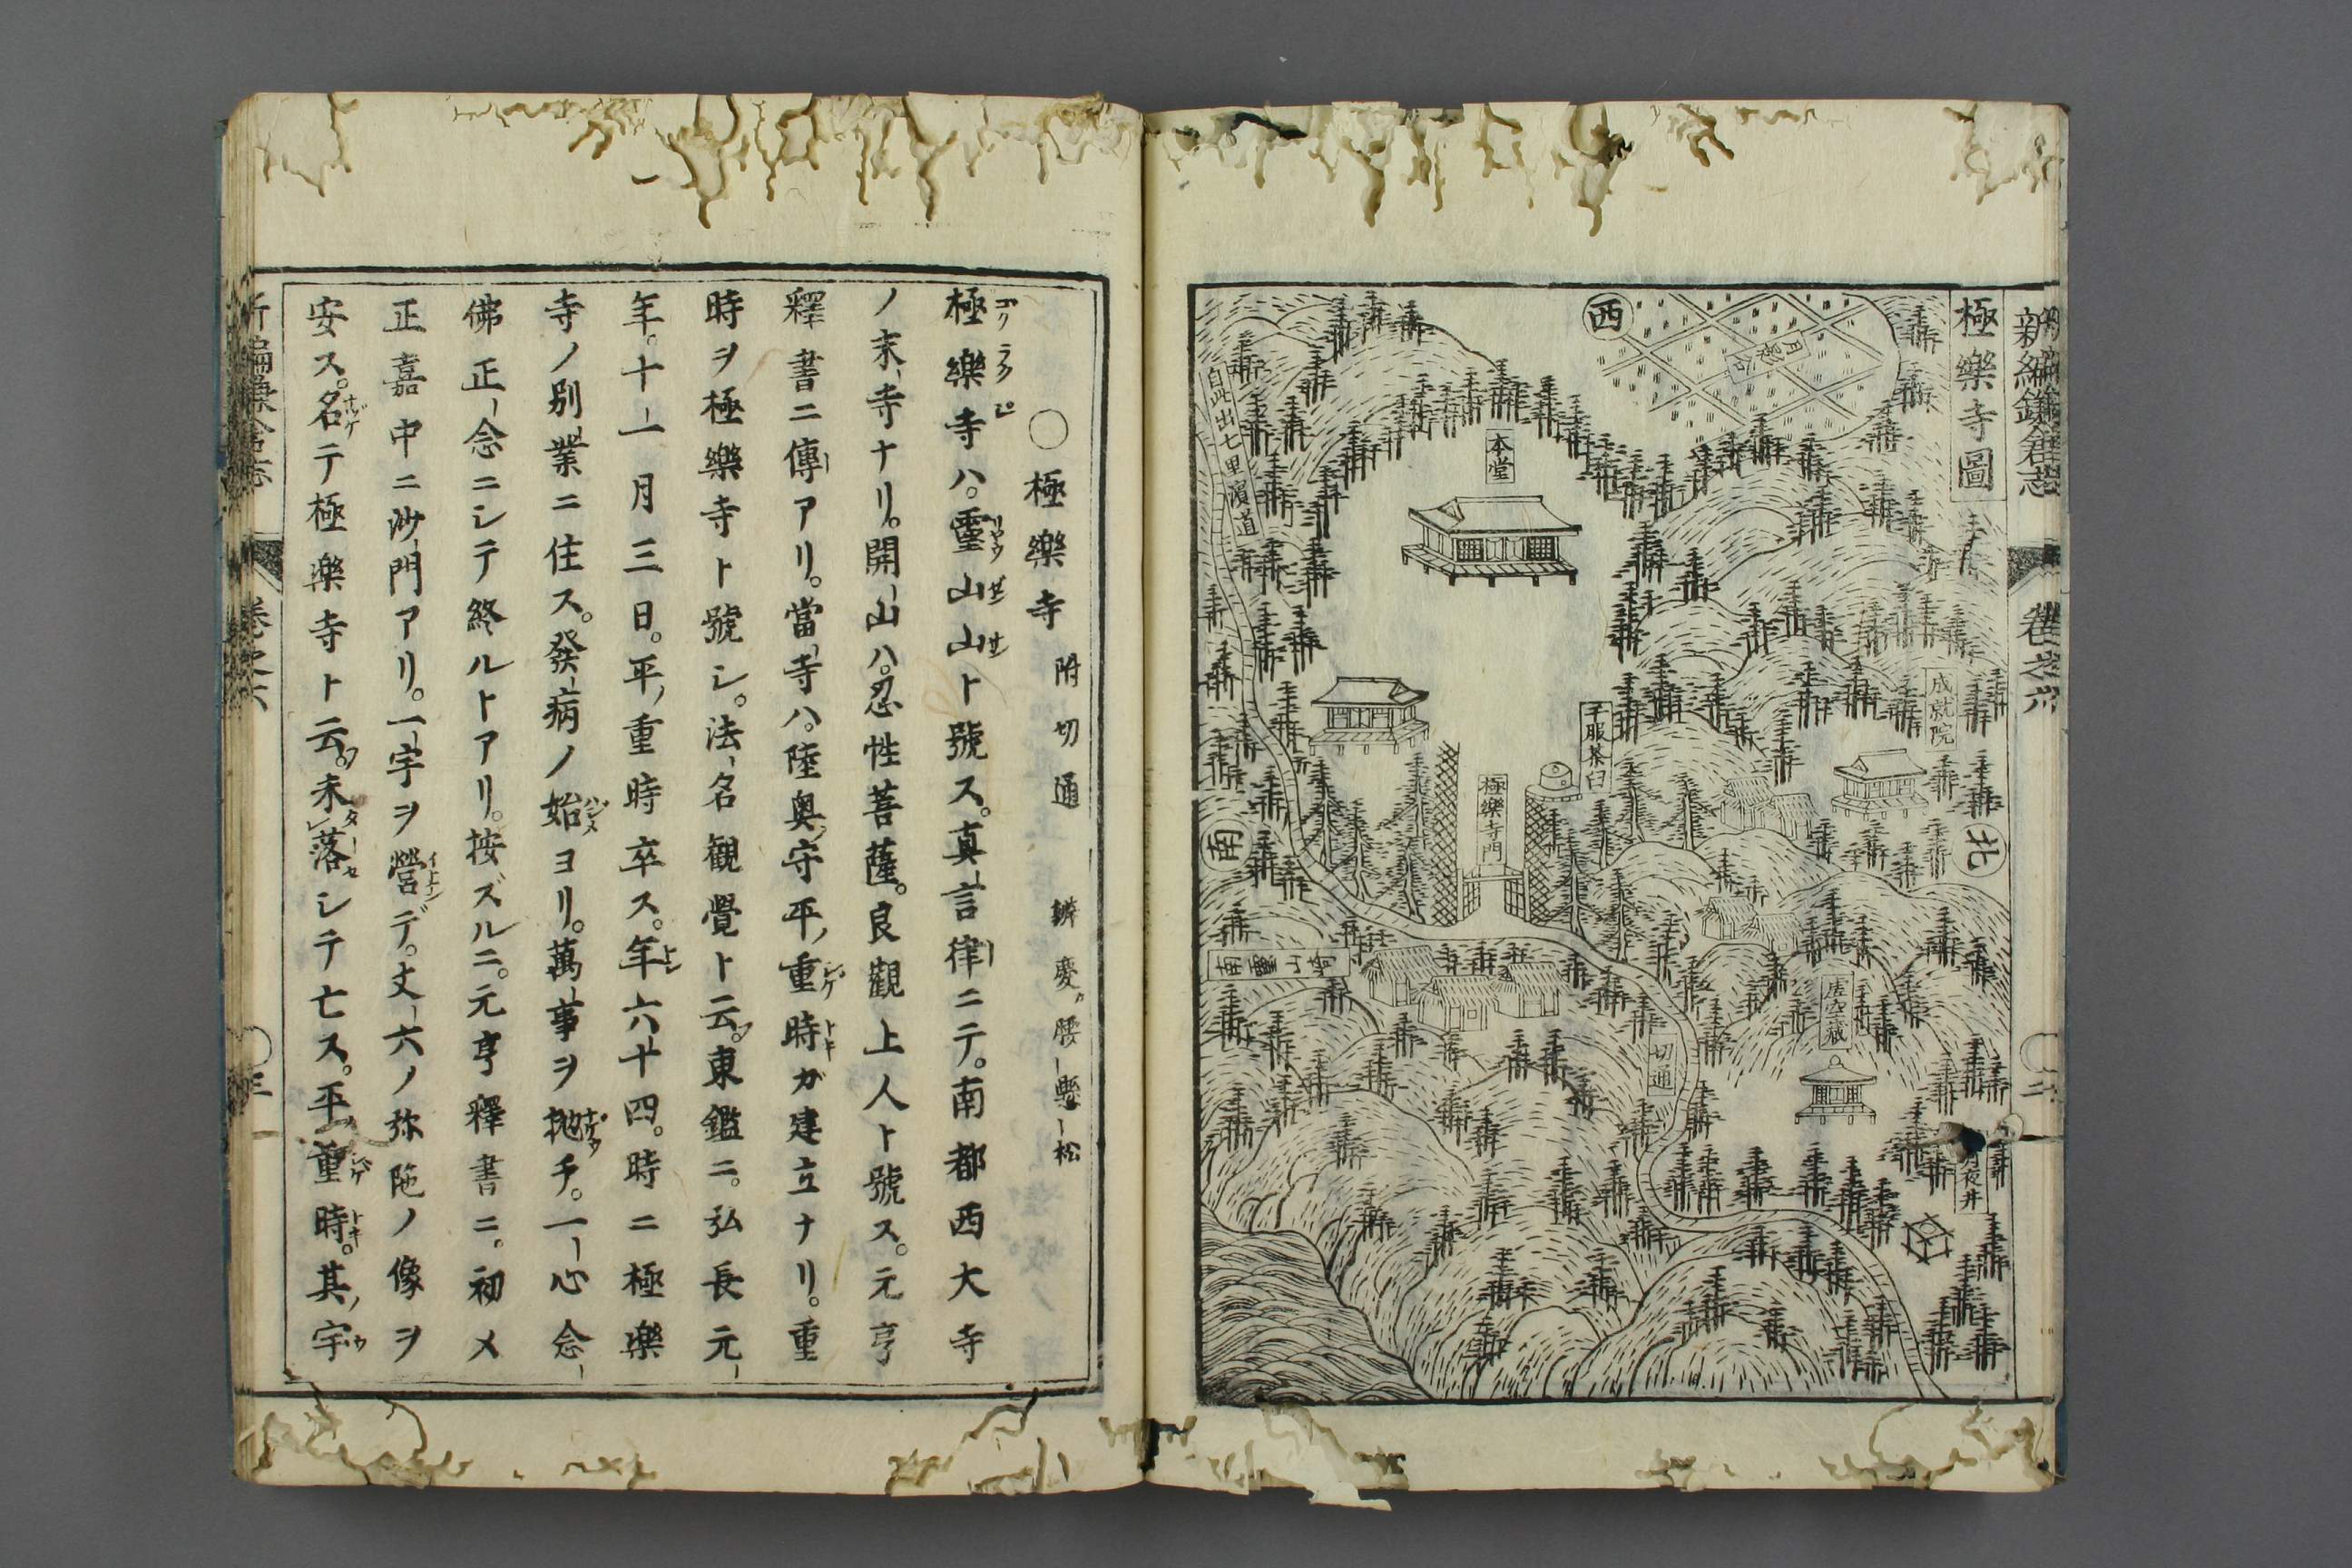 新編鎌倉志
卷之六
極樂寺圖
西
月影谷
本堂
自此出七里濱道
成就院
千服茶臼
極樂寺門
北
南
南靈山崎
虚空藏
切通
夜井
○極樂寺 附切通 辨慶ガ腰懸松
極樂寺ハ。靈山山ト號ス。真言律ニテ。南都西大寺
ノ末寺ナリ。開山ハ。忍性菩薩。良觀上人ト號ス。元亨
釋書ニ傳アリ。當寺ハ。陸奥守平重時ガ建立ナリ。重
時ヲ極樂寺ト號シ。法名觀覺ト云。東鑑ニ。弘長元
年。十一月三日。平重時卒ス。年六十四。時ニ極樂
寺ノ別業ニ住ス。發病ノ始ヨリ。萬事ヲ抛チ。一心念
佛正念ニシテ終ルトアリ。按ズルニ。元亨釋書ニ。初メ
正嘉中ニ沙門アリ。一宇ヲ營デ。丈六ノ弥陁ノ像ヲ
安ス。名テ極樂寺ト云。未落シテ亡ス。平重時。其ノ宇
新編鎌倉志
卷之六